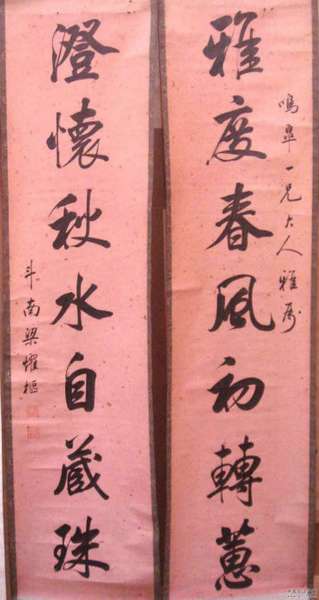 鳴皋一兄大人雅屬
雅度春風初轉蕙
澄懷秋水自藏珠
斗南梁耀樞